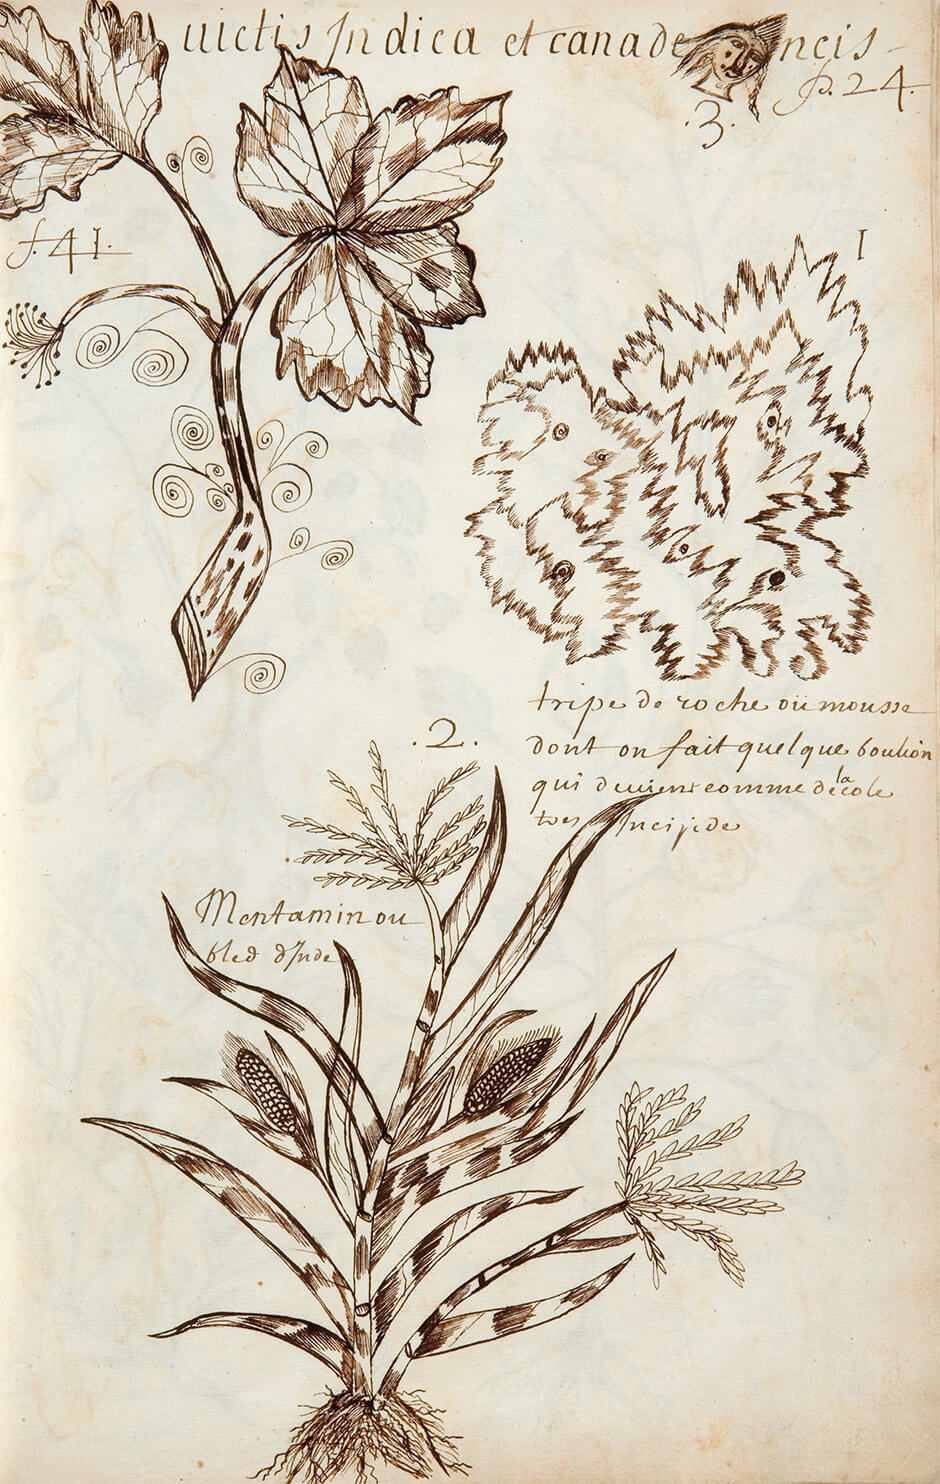 uictis Indica et canadencis
p. 24.
.3.
f. 41.
1
tripe de roche oü mousse
dont on fait quelque boulion
qui deuient comme de la cole
tres Incipide
.2.
Mentamin ou
bled dInde